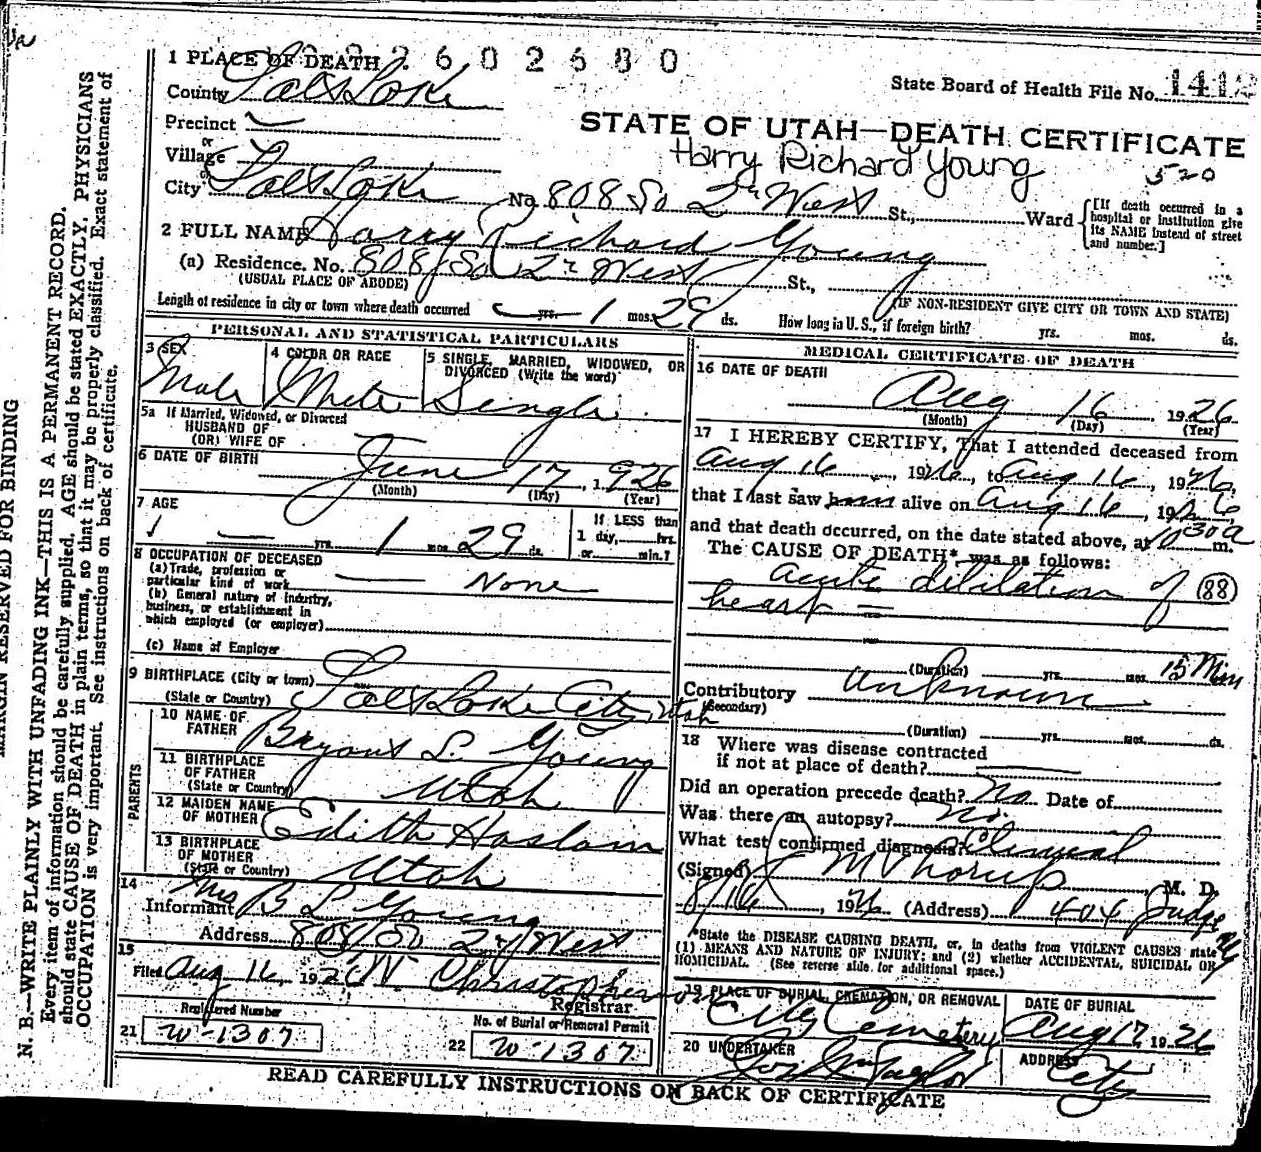 2602680
1 PLACE OF DEATH
State Board of Health File No. 1412
County Salt Lake
STATE OF UTAH—DEATH CERTIFICATE
Precinct
Harry Richard Young
or
Village
520
or
City Salt Lake No. 808 So 2nd West St., Ward
[If death occurred in a
hospital or institution give
its NAME instead of street
and number.]
2 FULL NAME Harry Richard Young
(a) Residence. No. 808 So 2nd West St.,
(USUAL PLACE OF ABODE)
(IF NON-RESIDENT GIVE CITY OR TOWN AND STATE)
Length of residence in city or town where death occurred — yrs. 1 mos. 29 ds. How long in U. S., if foreign birth? yrs. mos. ds.
PERSONAL AND STATISTICAL PARTICULARS
3 SEX
Male
4 COLOR OR RACE
White
5 SINGLE, MARRIED, WIDOWED, OR
DIVORCED (Write the word)
Single
5a If Married, Widowed, or Divorced
HUSBAND OF
(OR) WIFE OF
6 DATE OF BIRTH June 17, 1926
(Month) (Day) (Year)
7 AGE
— yrs. 1 mos. 29 ds.
If LESS than
1 day, hrs.
or min.?
8 OCCUPATION OF DECEASED
(a) Trade, profession or
particular kind of work — None
(b) General nature of industry,
business, or establishment in
which employed (or employer)
(c) Name of Employer
9 BIRTHPLACE (City or town)
(State or Country) Salt Lake City, Utah
PARENTS
10 NAME OF
FATHER Bryant L. Young
11 BIRTHPLACE
OF FATHER
(State or Country) Utah
12 MAIDEN NAME
OF MOTHER Edith Haslam
13 BIRTHPLACE
OF MOTHER
(State or Country) Utah
14
Informant Mrs B L Young
Address 808 So 2nd West
15
Filed Aug 16, 1926 W. Christopherson
Registrar
Registered Number
21 W-1307
No. of Burial or Removal Permit
22 W-1307
MEDICAL CERTIFICATE OF DEATH
16 DATE OF DEATH
Aug 16 1926
(Month) (Day) (Year)
17 I HEREBY CERTIFY, That I attended deceased from
Aug 16, 1926, to Aug 16, 1926,
that I last saw him alive on Aug 16, 1926
and that death occurred, on the date stated above, at 1030a m.
The CAUSE OF DEATH* was as follows:
acute dililation of (88)
heart —
(Duration) yrs. mos. 15 Min
Contributory unknown
(Secondary)
(Duration) yrs. mos. ds.
18 Where was disease contracted
if not at place of death?
Did an operation precede death? No Date of
Was there an autopsy? No.
What test confirmed diagnosis? Clinical
(Signed) M Thorup, M. D.
8/16, 1926 (Address) 404 Judge
*State the DISEASE CAUSING DEATH, or, in deaths from VIOLENT CAUSES state
(1) MEANS AND NATURE OF INJURY; and (2) whether ACCIDENTAL, SUICIDAL OR
HOMICIDAL. (See reverse side for additional space.)
19 PLACE OF BURIAL, CREMATION, OR REMOVAL
City Cemetery
DATE OF BURIAL
Aug 17 1926
20 UNDERTAKER
Jos Wm Taylor
ADDRESS
City
READ CAREFULLY INSTRUCTIONS ON BACK OF CERTIFICATE
MARGIN RESERVED FOR BINDING
N. B.—WRITE PLAINLY WITH UNFADING INK—THIS IS A PERMANENT RECORD.
Every item of information should be carefully supplied. AGE should be stated EXACTLY. PHYSICIANS
should state CAUSE OF DEATH in plain terms, so that it may be properly classified. Exact statement of
OCCUPATION is very important. See instructions on back of certificate.